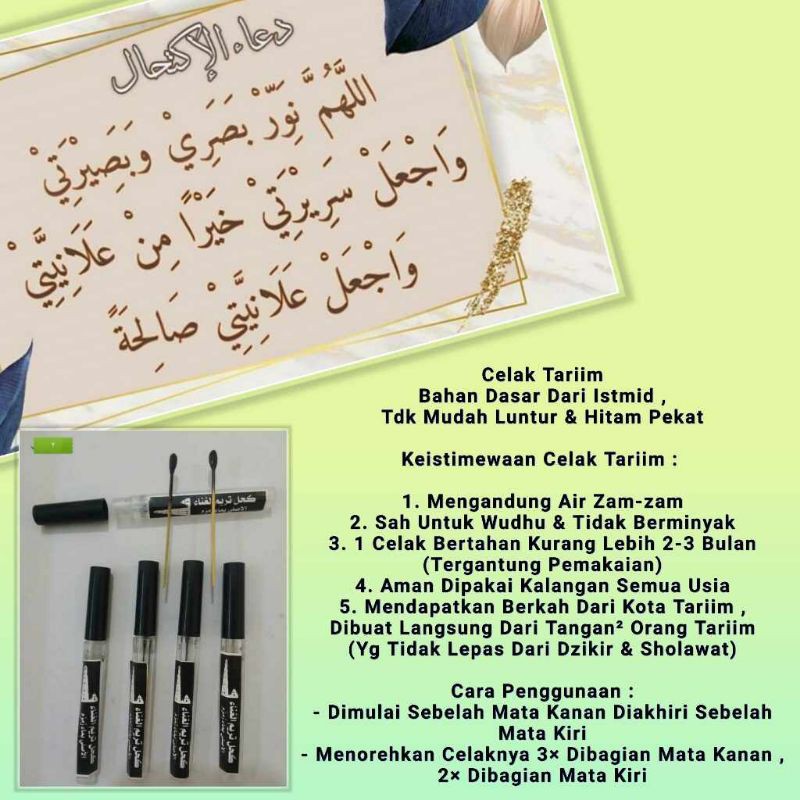 دعاء الإكتحال
اللَّهُمَّ نَوِّرْ بَصَرِيْ وَبَصِيْرَتِيْ
وَاجْعَلْ سَرِيْرَتِيْ خَيْرًا مِنْ عَلَانِيَتِيْ
وَاجْعَلْ عَلَانِيَّتِيْ صَالِحَةً
Celak Tariim
Bahan Dasar Dari Istmid ,
Tdk Mudah Luntur & Hitam Pekat
Keistimewaan Celak Tariim :
1. Mengandung Air Zam-zam
2. Sah Untuk Wudhu & Tidak Berminyak
3. 1 Celak Bertahan Kurang Lebih 2-3 Bulan
(Tergantung Pemakaian)
4. Aman Dipakai Kalangan Semua Usia
5. Mendapatkan Berkah Dari Kota Tariim ,
Dibuat Langsung Dari Tangan² Orang Tariim
(Yg Tidak Lepas Dari Dzikir & Sholawat)
Cara Penggunaan :
- Dimulai Sebelah Mata Kanan Diakhiri Sebelah
Mata Kiri
- Menorehkan Celaknya 3× Dibagian Mata Kanan ,
2× Dibagian Mata Kiri
كحل تريم الغناء
كحل تريم الغناء
كحل تريم الغناء
كحل تريم الغناء
كحل تريم الغناء